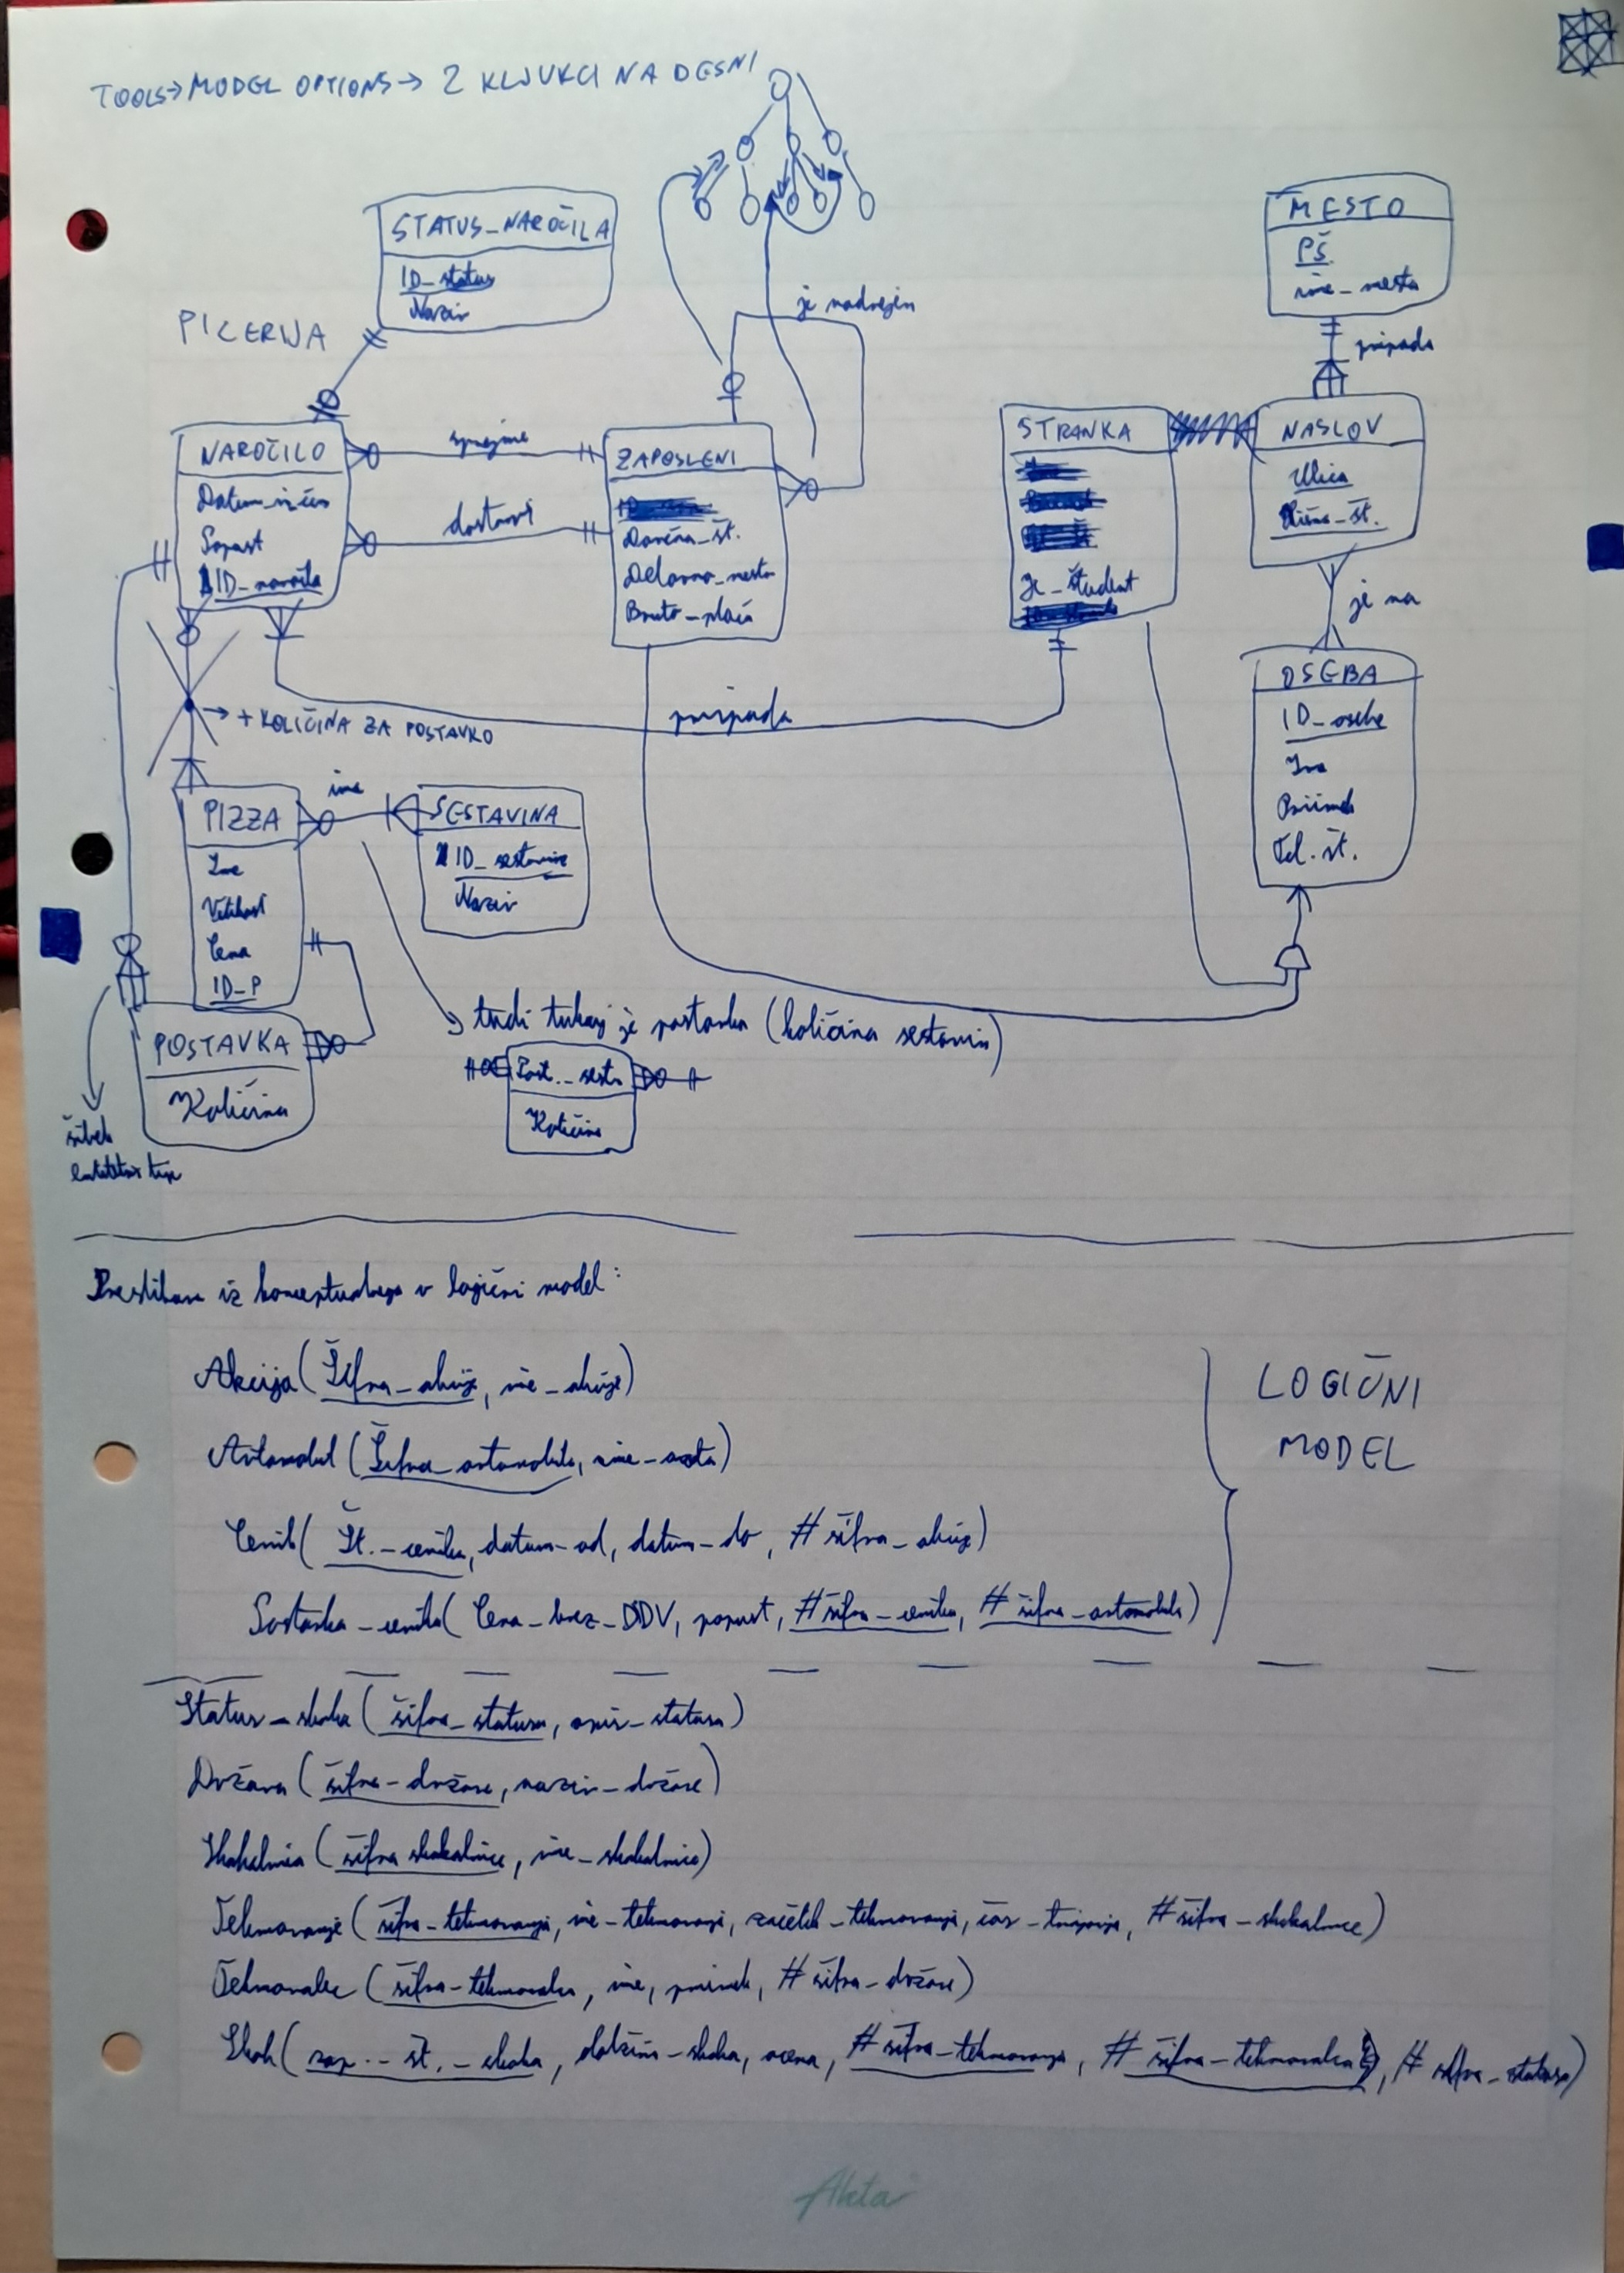 TOOLS→MODEL OPTIONS→ 2 KLJUKCI NA DESNI
PICERIJA
STATUS_NAROČILA
ID_status
Naziv
MESTO
PŠ
ime_mesta
pripada
je nadrejen
NAROČILO
Datum_in_čas
Popust
ID_naročila
sprejme
dostavi
ZAPOSLENI
Davčna_št.
Delovno_mesto
Bruto_plača
STRANKA
Je_študent
NASLOV
Ulica
Hišna_št.
je na
OSEBA
ID_osebe
Ime
Priimek
Tel. št.
pripada
→ + KOLIČINA ZA POSTAVKO
PIZZA
Ime
Velikost
Cena
ID_P
ima
SESTAVINA
ID_sestavine
Naziv
tudi tukaj je postavka (količina sestavin)
POSTAVKA
Količina
Post._sest.
Količina
šibek
entitetni tip
Preslikava iz konceptualnega v logični model:
Akcija (Šifra_akcije, ime_akcije)
Avtomobil (Šifra_avtomobila, ime_avta)
Cenik (Št._cenika, datum_od, datum_do, #šifra_akcije)
Postavka_cenika (Cena_brez_DDV, popust, #šifra_cenika, #šifra_avtomobila)
LOGIČNI
MODEL
Status_skoka (šifra_statusa, opis_statusa)
Država (šifra_države, naziv_države)
Skakalnica (šifra skakalnice, ime_skakalnice)
Tekmovanje (šifra_tekmovanja, ime_tekmovanja, začetek_tekmovanja, čas_trajanja, #šifra_skakalnice)
Tekmovalec (šifra_tekmovalca, ime, priimek, #šifra_države)
Skok (zap._št._skoka, dolžina_skoka, ocena, #šifra_tekmovanja, #šifra_tekmovalca, #šifra_statusa)
Akta